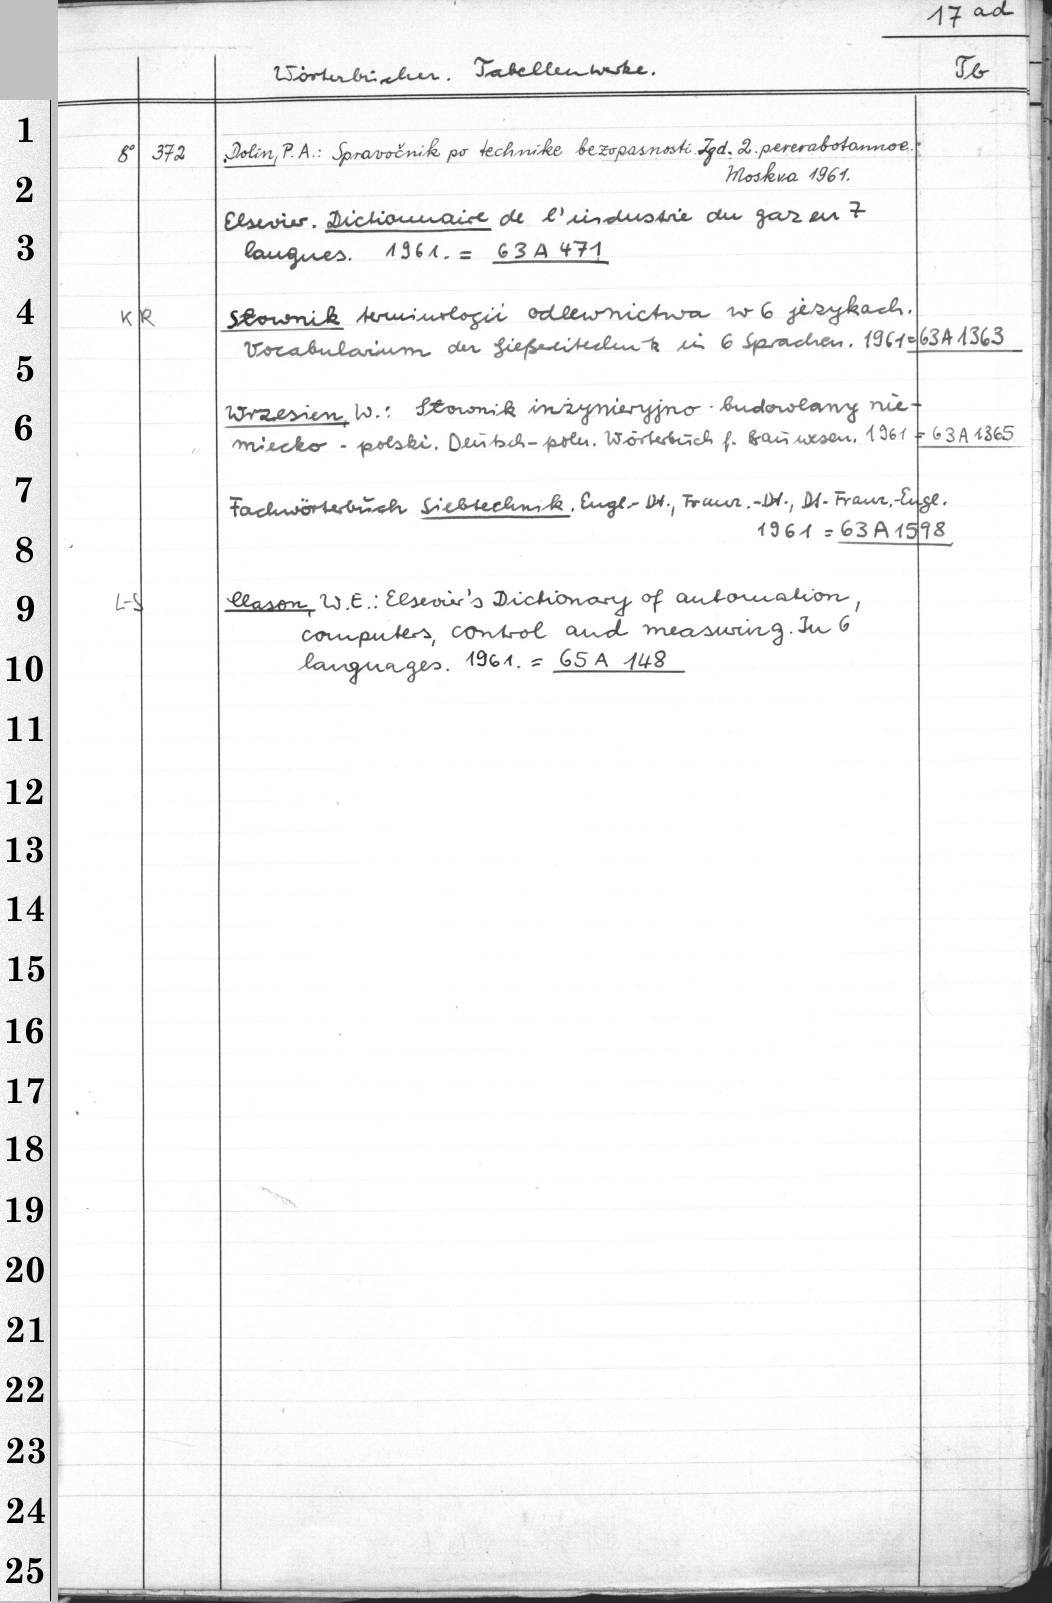 17 ad
Wörterbücher. Tabellenwerke. Tb
1
8° 372 Dolin, P.A.: Spravočnik po technike bezopasnosti. Izd. 2. pererabotannoe.
Moskva 1961.
2
Elsevier. Dictionnaire de l'industrie du gaz en 7
3
langues. 1961. = 63 A 471
4
K R Słownik terminologii odlewnictwa w 6 językach.
Vocabularium der Gießereitechnik in 6 Sprachen. 1961 = 63 A 1363
5
Wrzesien, W.: Słownik inżynieryjno-budowlany nie-
6
miecko-polski. Deutsch-poln. Wörterbuch f. Bauwesen. 1961 = 63 A 1365
7
Fachwörterbuch Siebtechnik. Engl.-Dt., Franz.-Dt., Dt.-Franz.-Engl.
1961 = 63 A 1598
8
9
L-S Clason, W.E.: Elsevier's Dictionary of automation,
computers, control and measuring. In 6
10
languages. 1961. = 65 A 148
11
12
13
14
15
16
17
18
19
20
21
22
23
24
25